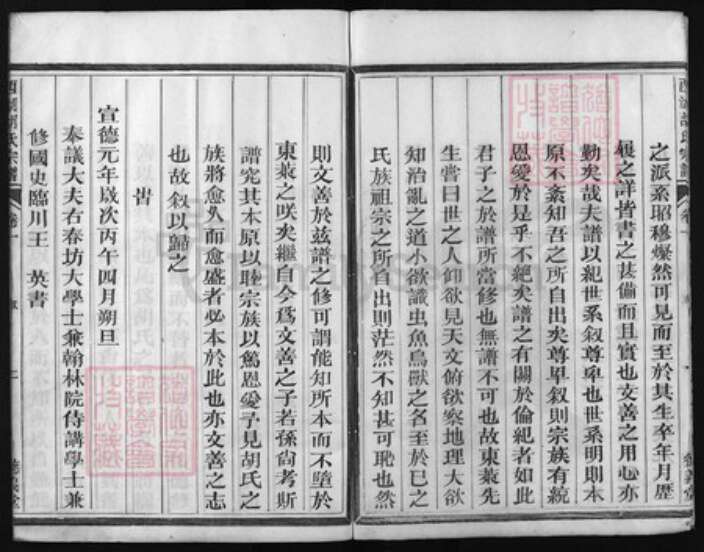 之派系昭穆燦然可見而至於其生卒年月歷
履之詳皆書之甚備而且實也文善之用心亦
勤矣哉夫譜以紀世系叙尊卑也世系明則本
原不紊知吾之所自出矣尊卑叙則宗族有統
恩愛於是乎不絕矣譜之有關於倫紀者如此
君子之於譜所當修也無譜不可也故東萊先
生嘗曰世之人仰欲見天文俯欲察地理大欲
知治亂之道小欲識虫魚鳥獸之名至於已之
氏族祖宗之所自出則茫然不知甚可恥也然
則文善於兹譜之修可謂能知所本而不墮於
東萊之咲矣繼自今為文善之子若孫尙考斯
譜究其本原以睦宗族以篤恩愛予見胡氏之
族將愈久而愈盛者必本於此也亦文善之志
也故叙以歸之
旹
宣德元年歲次丙午四月朔旦
奉議大夫右春坊大學士兼翰林院侍講學士兼
修國史臨川王 英書
氏宗譜
卷一